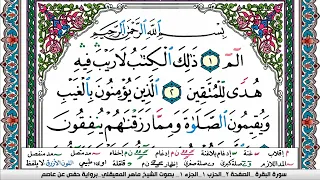 بِسْمِ اللَّهِ الرَّحْمَٰنِ الرَّحِيمِ
الٓمٓ ١ ذَٰلِكَ الْكِتَٰبُ لَا رَيْبَ فِيهِ
هُدًى لِّلْمُتَّقِينَ ٢ الَّذِينَ يُؤْمِنُونَ بِالْغَيْبِ
وَيُقِيمُونَ الصَّلَوٰةَ وَمِمَّا رَزَقْنَٰهُمْ يُنفِقُونَ
سورة البقرة الصفحة ٢ الحزب ١ الجزء ١ بصوت الشيخ ماهر المعيقلي برواية حفص عن عاصم